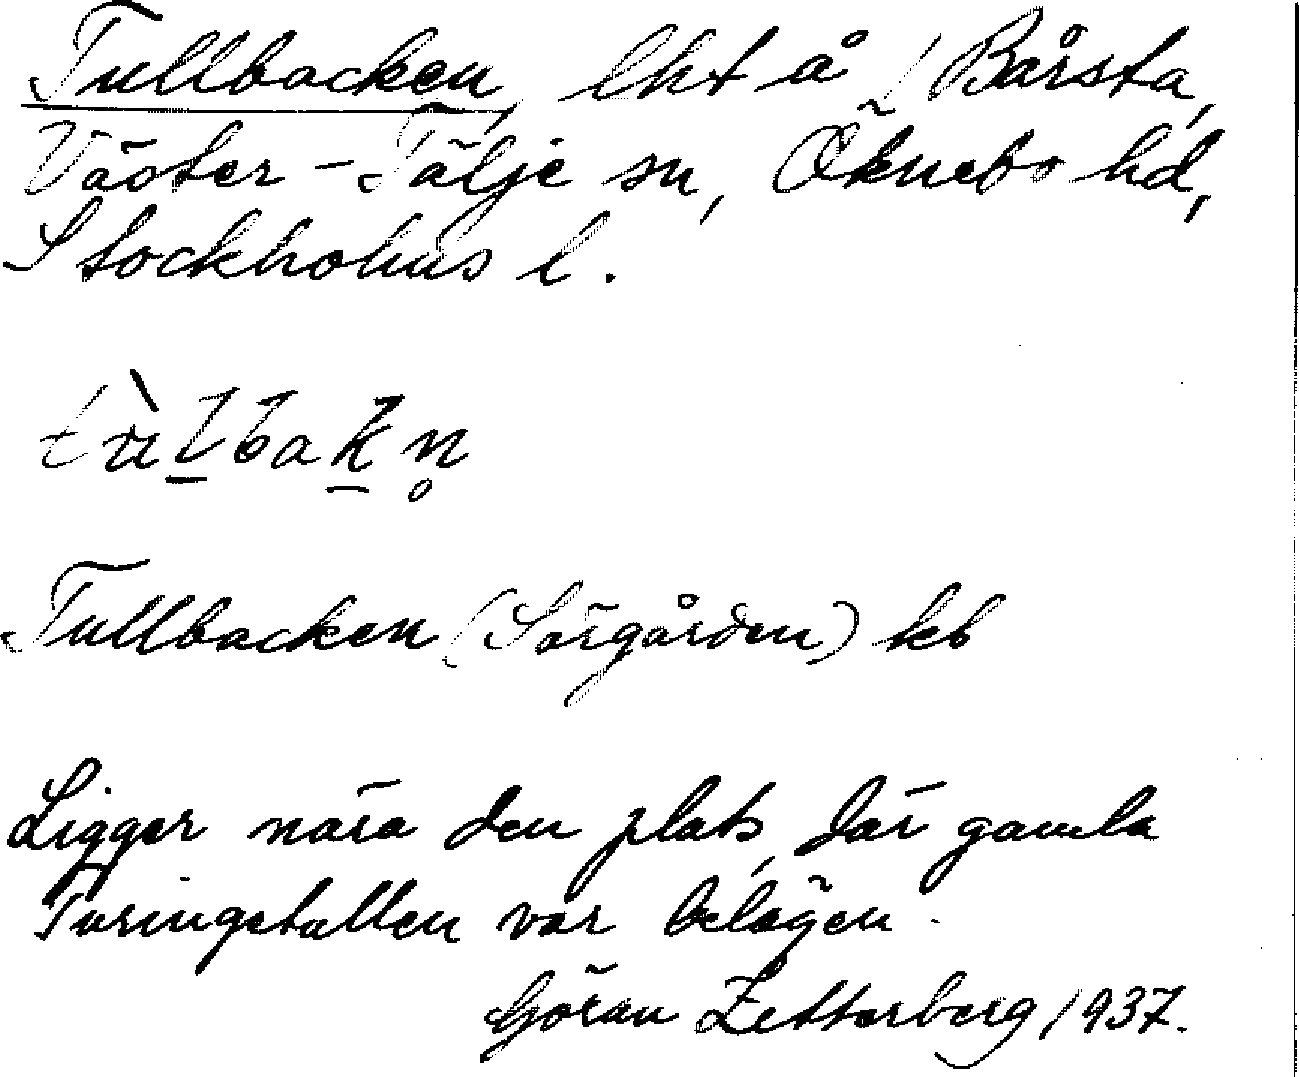 Tullbacken, lht å 1 Bårsta,
Väster-Tälje sn, Öknebo hd,
Stockholms l.
tùl̠bak̠n̥
Tullbacken (Sörgården) kb
Ligger nära den plats, där gamla
Turingetullen var belägen.
Göran Zetterberg 1937.